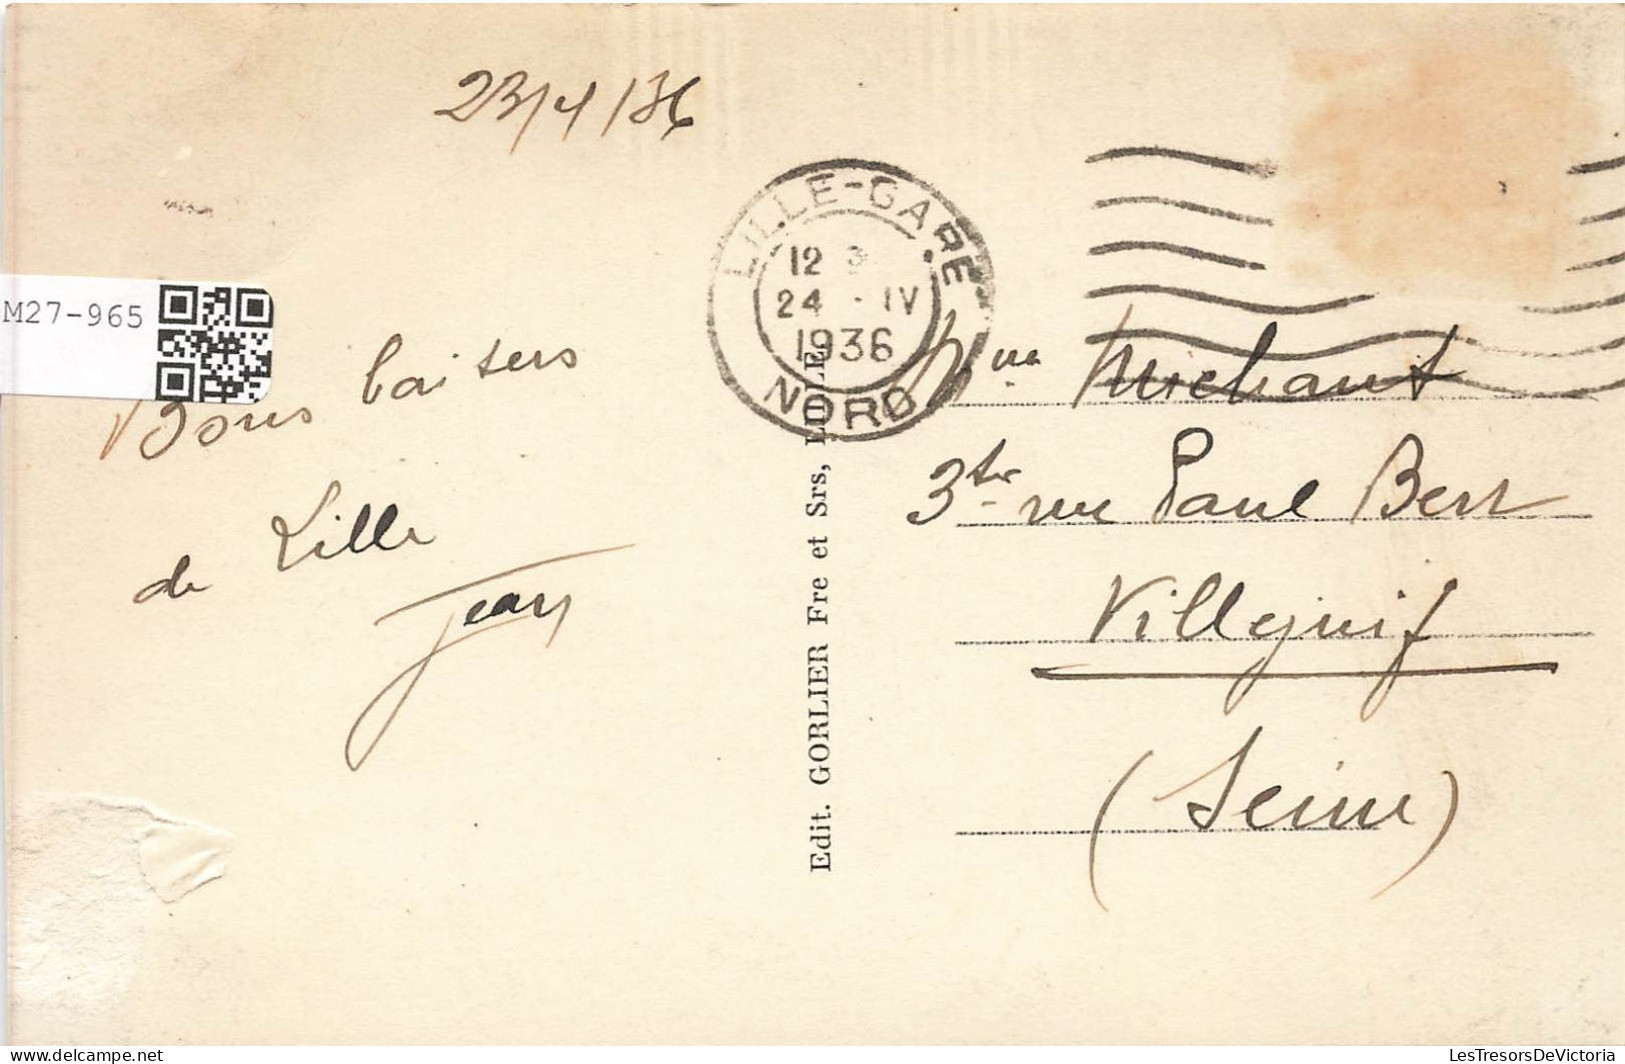 23/4/36
LILLE-GARE
12
24 · IV
1936
NORD
M27-965
Bons baisers
de Lille
Jean
Edit. GORLIER Fre et Srs, LILLE
Mme Michaut
3ter rue Paul Bert
Villejuif
(Seine)
LesTresorsDeVictoria